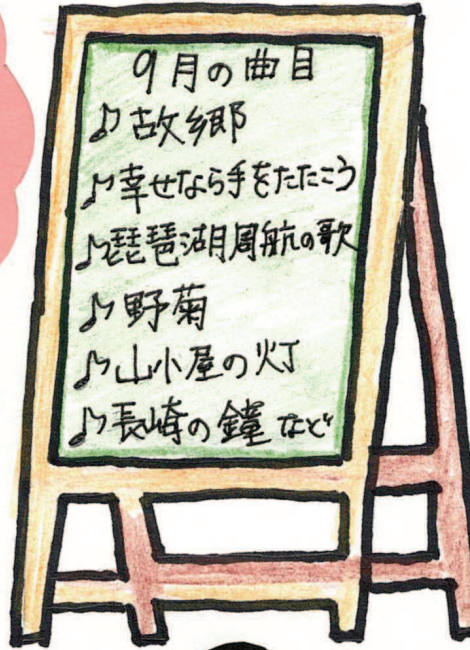 9月の曲目
♪故郷
♪幸せなら手をたたこう
♪琵琶湖周航の歌
♪野菊
♪山小屋の灯
♪長崎の鐘など